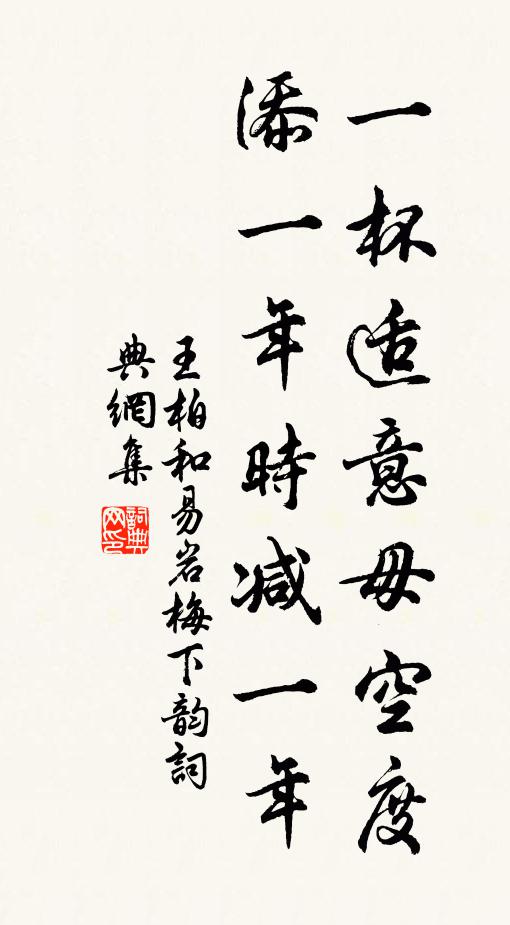 一杯适意毋空度
添一年時減一年
王柏和易岩梅下韵詞
典網集
詞典
网印